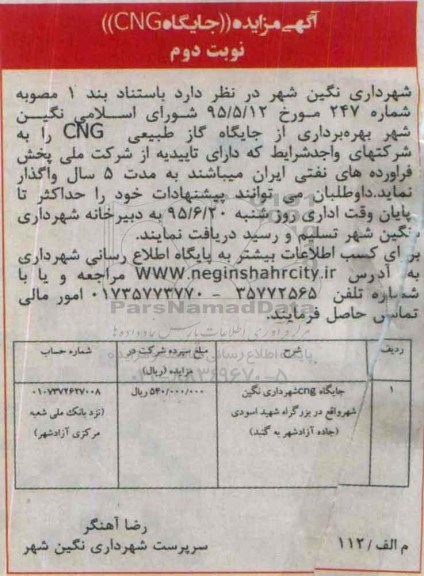 آگهی مزایده ((جایگاه CNG))
نوبت دوم
شهرداری نگین شهر در نظر دارد باستناد بند ۱ مصوبه
شماره ۲۴۷ مورخ ۹۵/۵/۱۲ شورای اسلامی نگین
شهر بهره‌برداری از جایگاه گاز طبیعی CNG را به
شرکتهای واجدشرایط که دارای تاییدیه از شرکت ملی پخش
فراورده های نفتی ایران میباشند به مدت ۵ سال واگذار
نماید.داوطلبان می توانند پیشنهادات خود را حداکثر تا
پایان وقت اداری روز شنبه ۹۵/۶/۲۰ به دبیرخانه شهرداری
نگین شهر تسلیم و رسید دریافت نمایند.
برای کسب اطلاعات بیشتر به پایگاه اطلاع رسانی شهرداری
به آدرس WWW.neginshahrcity.ir مراجعه و یا با
شماره تلفن ۳۵۷۷۲۵۶۵ - ۰۱۷۳۵۷۷۳۷۷۰ امور مالی
تماس حاصل فرمایند.
ParsNamadData
ردیف شرح مبلغ سپرده شرکت در شماره حساب
مزایده (ریال)
۱ جایگاه cng شهرداری نگین ۵۴۰/۰۰۰/۰۰۰ ریال ۰۱۰۷۳۷۲۶۲۷۰۰۸
شهرواقع در بزرگراه شهید اسودی (نزد بانک ملی شعبه
(جاده آزادشهر به گنبد) مرکزی آزادشهر)
رضا آهنگر
سرپرست شهرداری نگین شهر
م الف / ۱۱۲